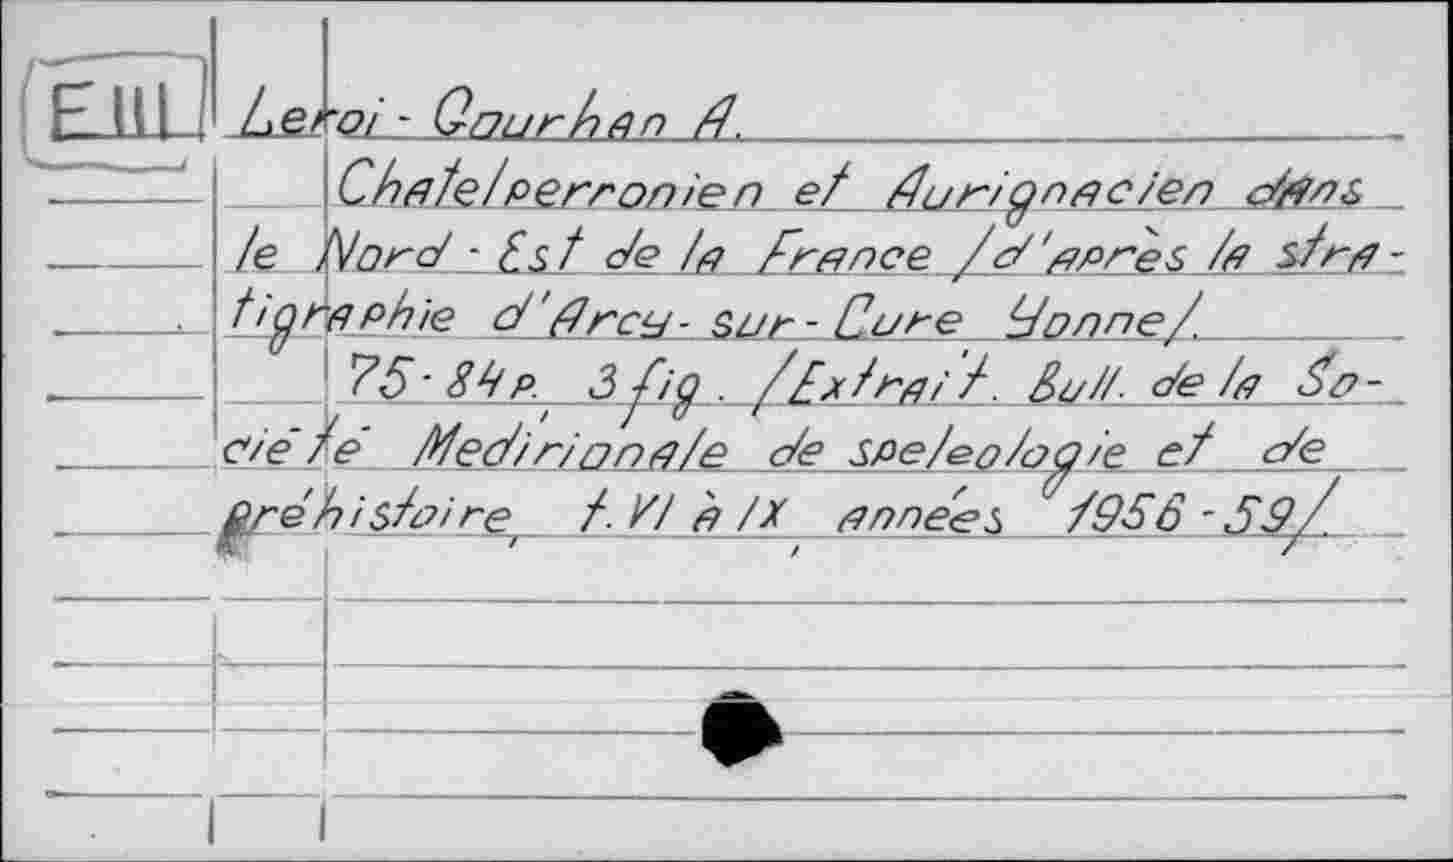 E III Leroi - Gourhan A.
Chatelperronien et Aurignacien dans
le Nord - Est de la France /d'après la stra-
tigraphie d'Arcy - sur - Cure Yonne/.
75 - 84 p. 3 fig. /Extrait. Bull. de la So-
ciété Medirionale de speleologie et de
préhistoire, t. VI à IX, années 1956 - 59/.